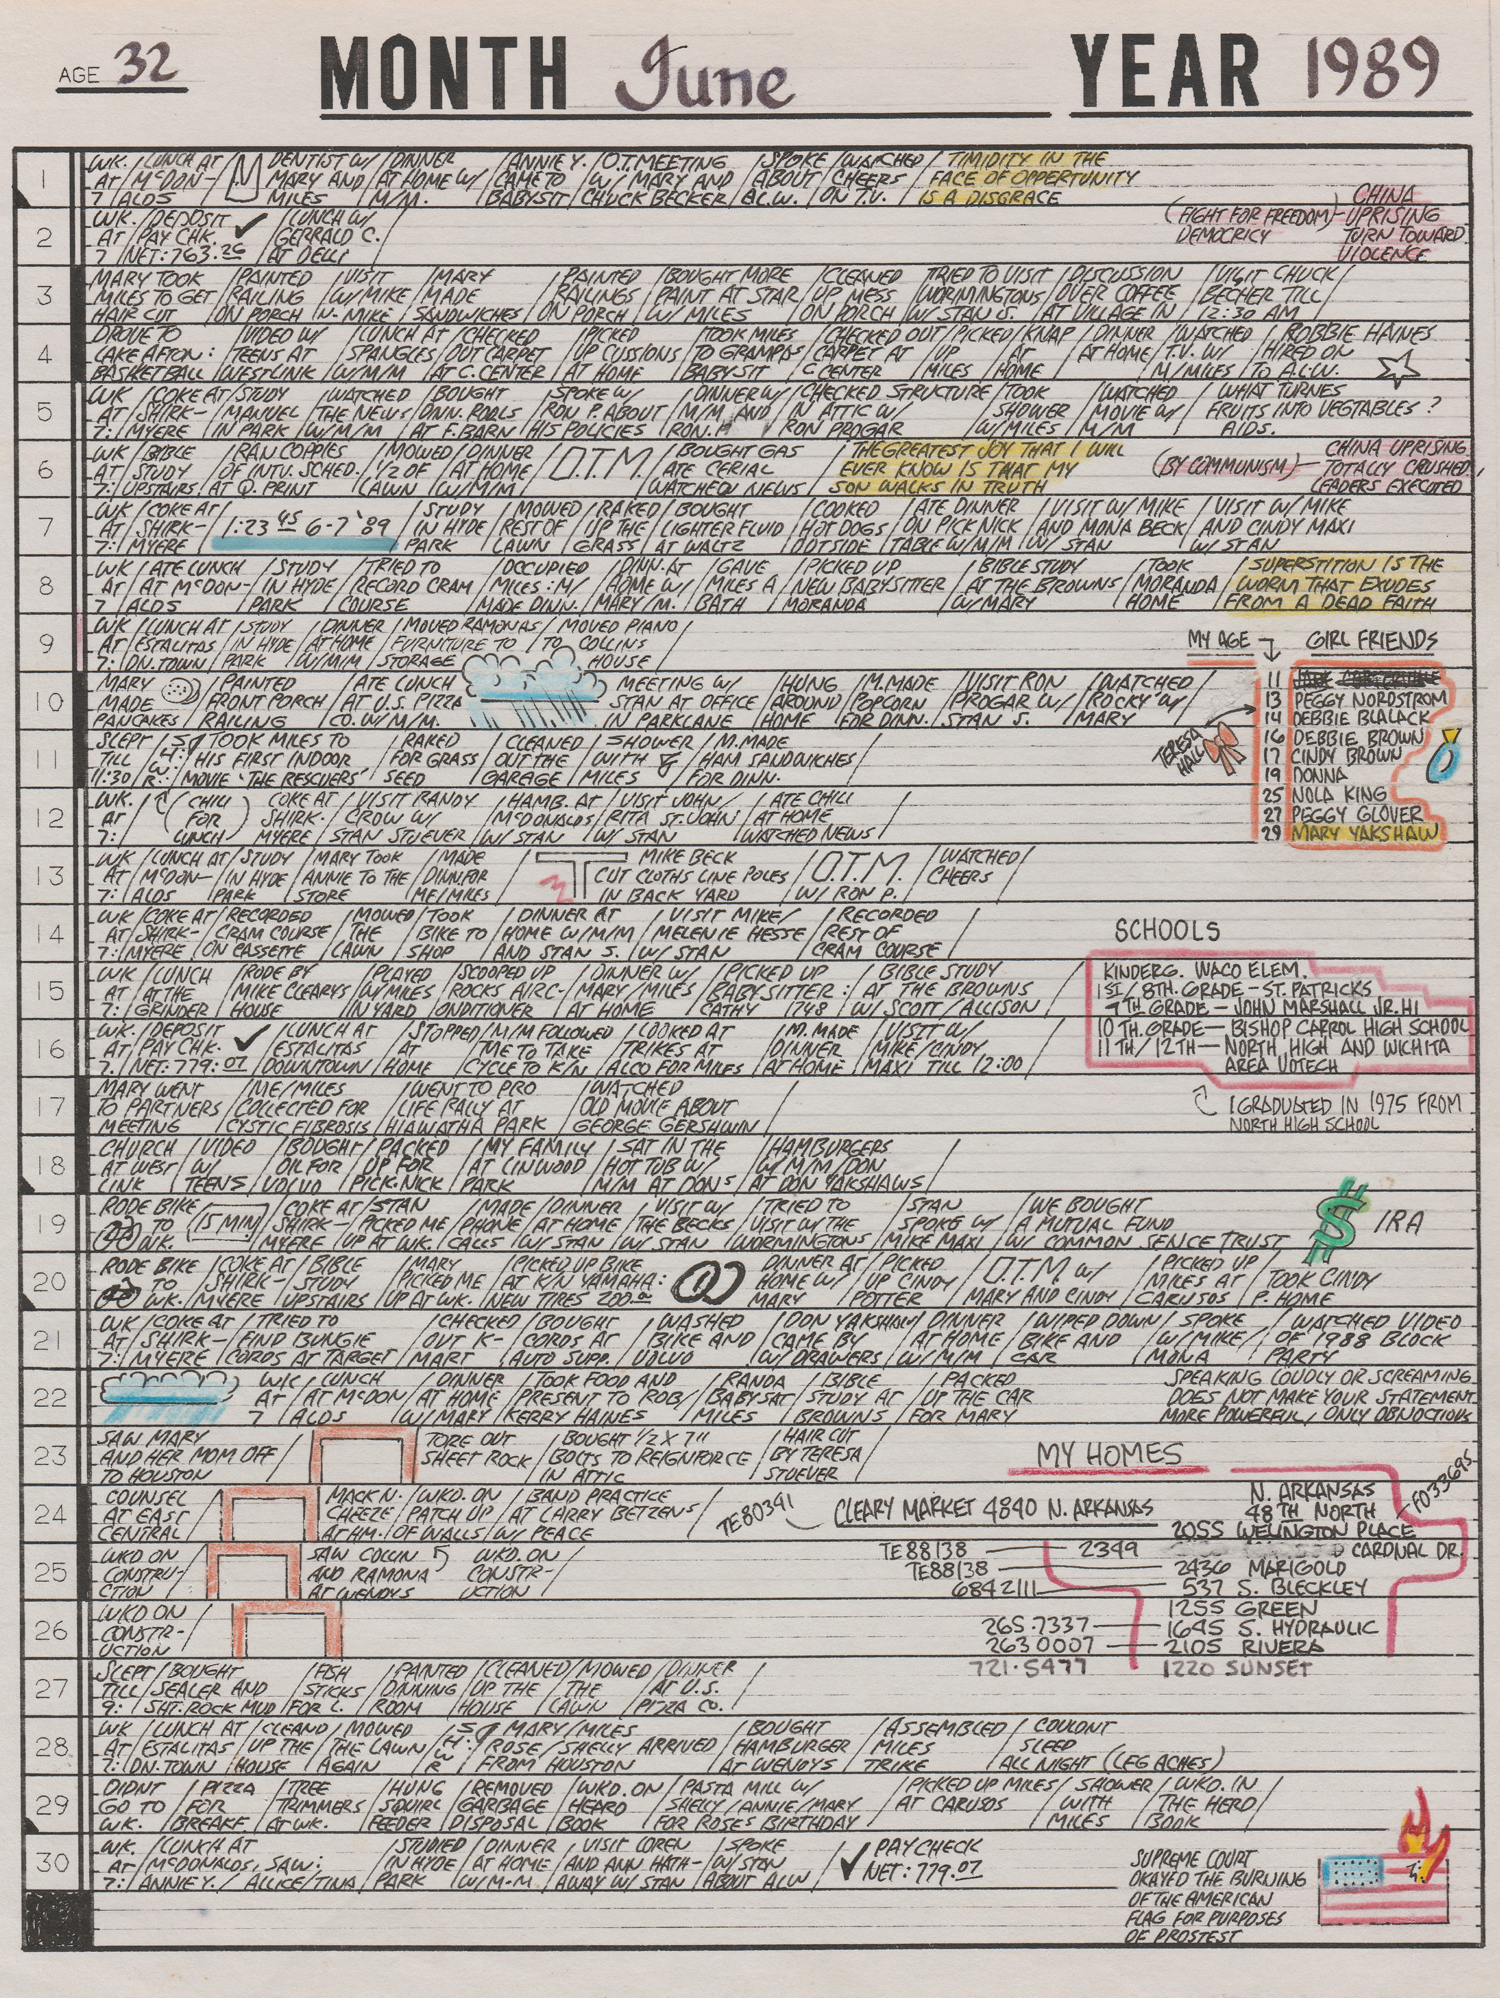 AGE 32 MONTH June YEAR 1989
1
WK. / LUNCH AT / DENTIST W/ / DINNER / ANNIE Y. / O.T. MEETING / SPOKE / WATCHED / TIMIDITY IN THE
AT / McDON- / MARY AND / AT HOME W/ / CAME TO / W/ MARY AND / ABOUT / CHEERS / FACE OF OPPORTUNITY
7 / ALDS / MILES / M/M. / BABYSIT / CHUCK BECKER / A.L.W. / ON T.V. / IS A DISGRACE
CHINA
(FIGHT FOR FREEDOM) - UPRISING
DEMOCRICY TURN TOWARD
VIOLENCE
2
WK. / DEPOSIT ✓ / LUNCH W/
AT / PAY CHK. / GERRALD C.
7 / NET: 763.26 / AT DELLI
3
MARY TOOK / PAINTED / VISIT / MARY / PAINTED / BOUGHT MORE / CLEANED / TRIED TO VISIT / DISCUSSION / VISIT CHUCK
MILES TO GET / RAILING / W/ MIKE / MADE / RAILINGS / PAINT AT STAR / UP MESS / WORMINGTONS / OVER COFFEE / BECHER TILL
HAIR CUT / ON PORCH / N- MIKE / SANDWICHES / ON PORCH / W/ MILES / ON PORCH / W/ STAN S. / AT VILLAGE IN / 12:30 AM
4
DROVE TO / VIDEO W/ / LUNCH AT / CHECKED / PICKED / TOOK MILES / CHECKED OUT / PICKED / KNAP / DINNER / WATCHED / ROBBIE HAINES
LAKE AFTON: / TEENS AT / SPANGLES / OUT CARPET / UP CUSSIONS / TO GRAMPAS / CARPET AT / UP / AT / AT HOME / T.V. W/ / HIRED ON
BASKETBALL / WESTLINK / W/M/M / AT C. CENTER / AT HOME / BABYSIT / C CENTER / MILES / HOME / M/MILES / TO A.L.W.
5
WK / COKE AT / STUDY / WATCHED / BOUGHT / SPOKE W/ / DINNER W/ / CHECKED STRUCTURE / TOOK / WATCHED / WHAT TURNES
AT / SHIRK- / MANUEL / THE NEWS / DINN. ROLLS / RON P. ABOUT / M/M AND / IN ATTIC W/ / SHOWER / MOVIE W/ / FRUITS INTO VEGTABLES?
7: / MYERE / IN PARK / W/M/M / AT F. BARN / HIS POLICIES / RON. P / RON PROGAR / W/MILES / M/M / AIDS.
6
WK / BIBLE / RAN COPPIES / MOWED / DINNER / O.T.M. / BOUGHT GAS / THE GREATEST JOY THAT I WILL / CHINA UPRISING
AT / STUDY / OF INTV. SCHED. / 1/2 OF / AT HOME / ATE CERIAL / EVER KNOW IS THAT MY (BY COMMUNISM) - TOTALLY CRUSHED.
7: / UPSTAIRS. / AT Q. PRINT / LAWN / W/M/M / WATCHED NEWS / SON WALKS IN TRUTH LEADERS EXECUTED
7
WK / COKE AT / 1:23 45 6-7 '89 / STUDY / MOWED / RAKED / BOUGHT / COOKED / ATE DINNER / VISIT W/ MIKE / VISIT W/ MIKE
AT / SHIRK- / IN HYDE / REST OF / UP THE / LIGHTER FLUID / HOT DOGS / ON PICK NICK / AND MONA BECK / AND CINDY MAXI
7: / MYERE / PARK / LAWN / GRASS / AT WALTZ / OUTSIDE / TABLE W/M/M / W/ STAN / W/ STAN
8
WK / ATE LUNCH / STUDY / TRIED TO / OCCUPIED / DINN. AT / GAVE / PICKED UP / BIBLE STUDY / TOOK / SUPERSTITION IS THE
AT / AT McDON- / IN HYDE / RECORD CRAM / MILES: M/ / HOME W/ / MILES A / NEW BABYSITTER / AT THE BROWNS / MORANDA / WORM THAT EXUDES
7 / ALDS / PARK / COURSE / MADE DINN. / MARY/M. / BATH / MORANDA / W/MARY / HOME / FROM A DEAD FAITH
9
WK / LUNCH AT / STUDY / DINNER / MOVED RAMONAS / MOVED PIANO
AT / ESTALITAS / IN HYDE / AT HOME / FURNITURE TO / TO COLLINS
7: / DN. TOWN / PARK / W/M/M / STORAGE / HOUSE
MY AGE → GIRL FRIENDS
11
13 PEGGY NORDSTROM
14 DEBBIE BLALACK
16 DEBBIE BROWN
17 CINDY BROWN
19 DONNA
25 NOLA KING
27 PEGGY GLOVER
29 MARY YAKSHAW
TERESA
HALL
10
MARY / PAINTED / ATE LUNCH / MEETING W/ / HUNG / M. MADE / VISIT RON / WATCHED
MADE / FRONT PORCH / AT U.S. PIZZA / STAN AT OFFICE / AROUND / POPCORN / PROGAR W/ / "ROCKY" W/
PANCAKES / RAILING / CO. W/M/M. / IN PARKLANE / HOME / FOR DINN. / STAN S. / MARY
11
SLEPT / TOOK MILES TO / RAKED / CLEANED / SHOWER / M. MADE
TILL / HIS FIRST INDOOR / FOR GRASS / OUT THE / WITH / HAM SANDWICHES
11:30 / MOVIE "THE RESCUERS" / SEED / GAREGE / MILES / FOR DINN.
12
WK. / (CHILI / COKE AT / VISIT RANDY / HAMB. AT / VISIT JOHN/ / ATE CHILI
AT / FOR / SHIRK- / CROW W/ / McDONALDS / RITA ST. JOHN / AT HOME
7: / LUNCH) / MYERE / STAN STUEVER / W/ STAN / W/ STAN / WATCHED NEWS
13
WK / LUNCH AT / STUDY / MARY TOOK / MADE / MIKE BECK / O.T.M. / WATCHED
AT / McDON- / IN HYDE / ANNIE TO THE / DINN. FOR / CUT CLOTHS LINE POLES / CHEERS
7: / ALDS / PARK / STORE / ME/MILES / IN BACK YARD / W/ RON P.
14
WK / COKE AT / RECORDED / MOWED / TOOK / DINNER AT / VISIT MIKE/ / RECORDED
AT / SHIRK- / CRAM COURSE / THE / BIKE TO / HOME W/M/M / MELENIE HESSE / REST OF
7: / MYERE / ON CASSETTE / LAWN / SHOP / AND STAN S. / W/ STAN / CRAM COURSE
SCHOOLS
KINDERG. WACO ELEM.
1ST/8TH. GRADE - ST. PATRICKS
9TH GRADE - JOHN MARSHALL JR. HI
10TH. GRADE - BISHOP CARROL HIGH SCHOOL
11TH/12TH - NORTH HIGH AND WICHITA
AREA VOTECH
I GRADUATED IN 1975 FROM
NORTH HIGH SCHOOL
15
WK / LUNCH / RODE BY / PLAYED / SCOOPED UP / DINNER W/ / PICKED UP / BIBLE STUDY
AT / AT THE / MIKE CLEARYS / W/MILES / ROCKS AIRC- / MARY/MILES / BABYSITTER: / AT THE BROWNS
7: / GRINDER / HOUSE / IN YARD / ONDITIONER / AT HOME / CATHY 1748 / W/ SCOTT/ALLISON
16
WK. / DEPOSIT ✓ / LUNCH AT / STOPPED / M/M FOLLOWED / LOOKED AT / M. MADE / VISIT W/
AT / PAY CHK: / ESTALITAS / AT / ME TO TAKE / TRIKES AT / DINNER / MIKE/CINDY
7: / NET: 779.07 / DOWNTOWN / HOME / CYCLE TO K/N / ALCO FOR MILES / AT HOME / MAXI TILL 12:00
17
MARY WENT / ME/MILES / WENT TO PRO / WATCHED
TO PARTNERS / COLLECTED FOR / LIFE RALLY AT / OLD MOVIE ABOUT
MEETING / CYSTIC FIBROSIS / HIAWATHA PARK / GEORGE GERSHWIN
18
CHURCH / VIDEO / BOUGHT / PACKED / MY FAMILY / SAT IN THE / HAMBURGERS
AT WEST / W/ / OIL FOR / UP FOR / AT LINWOOD / HOT TUB W/ / W/M/M/DON
LINK / TEENS / VOLVO / PICK-NICK / PARK / M/M AT DON'S / AT DON YAKSHAWS
19
RODE BIKE / 15 MIN / COKE AT / STAN / MADE / DINNER / VISIT W/ / TRIED TO / STAN / WE BOUGHT
TO / SHIRK- / PICKED ME / PHONE / AT HOME / THE BECKS / VISIT W/ THE / SPOKE W/ / A MUTUAL FUND
WK. / MYERE / UP AT WK. / CALLS / W/ STAN / W/ STAN / WORMINGTONS / MIKE MAXI / W/ COMMON SENCE TRUST
$ IRA
20
RODE BIKE / COKE AT / BIBLE / MARY / PICKED UP BIKE / DINNER AT / PICKED / O.T.M. W/ / PICKED UP
TO / SHIRK- / STUDY / PICKED ME / AT K/N YAMAHA: / HOME W/ / UP CINDY / MARY AND CINDY / MILES AT / TOOK CINDY
WK. / MYERE / UPSTAIRS / UP AT WK. / NEW TIRES 200.00 / MARY / POTTER / CARUSOS / P. HOME
21
WK / COKE AT / TRIED TO / CHECKED / BOUGHT / WASHED / DON YAKSHAW / DINNER / WIPED DOWN / SPOKE / WATCHED VIDEO
AT / SHIRK- / FIND BUNGIE / OUT K- / CORDS AT / BIKE AND / CAME BY / AT HOME / BIKE AND / W/ MIKE/ / OF 1988 BLOCK
7: / MYERE / CORDS AT TARGET / MART / AUTO SUPP. / VOLVO / W/ DRAWERS / W/M/M / CAR / MONA / PARTY
22
WK / LUNCH / DINNER / TOOK FOOD AND / RANDA / BIBLE / PACKED / SPEAKING LOUDLY OR SCREAMING
AT / AT McDON / AT HOME / PRESENT TO ROB/ / BABYSAT / STUDY AT / UP THE CAR / DOES NOT MAKE YOUR STATEMENT
7 / ALDS / W/MARY / KERRY HAINES / MILES / BROWNS / FOR MARY / MORE POWERFUL, ONLY OBNOCTIOUS
23
SAW MARY / TORE OUT / BOUGHT 1/2 X 7" / HAIR CUT
AND HER MOM OFF / SHEET ROCK / BOLTS TO REIGNFORCE / BY TERESA
TO HOUSTON / IN ATTIC / STUEVER
MY HOMES
24
COUNSEL / MACK N- / WKD. ON / BAND PRACTICE
AT EAST / CHEEZE / PATCH UP / AT LARRY BETZENS
CENTRAL / AT HM. / OF WALLS / W/ PEACE
N. ARKANSAS
48TH NORTH F033695
TE80341 CLEARY MARKET 4840 N. ARKANSAS
2055 WELINGTON PLACE
TE88138 - 2349 CARDNAL DR.
TE88138 - 2436 MARIGOLD
6842111 - 537 S. BLECKLEY
1255 GREEN
265.7337 - 1645 S. HYDRAULIC
263 0007 - 2105 RIVERA
721.5477 1220 SUNSET
25
WKD ON / SAW COLLIN / WKD. ON
CONSTRU- / AND RAMONA / CONSTR-
CTION / AT WENDYS / UCTION
26
WKD ON
CONSTR-
UCTION
27
SLEPT / BOUGHT / FISH / PAINTED / CLEANED / MOWED / DINNER
TILL / SEALER AND / STICKS / DINNING / UP THE / THE / AT U.S.
9: / SHT. ROCK MUD / FOR L. / ROOM / HOUSE / LAWN / PIZZA CO.
28
WK / LUNCH AT / CLEAND / MOWED / MARY/MILES / BOUGHT / ASSEMBLED / COULDNT
AT / ESTALITAS / UP THE / THE LAWN / ROSE/SHELLY ARRIVED / HAMBURGER / MILES / SLEEP
7: / DN. TOWN / HOUSE / AGAIN / FROM HOUSTON / AT WENDYS / TRIKE / ALL NIGHT (LEG ACHES)
29
DIDNT / PIZZA / TREE / HUNG / REMOVED / WKD. ON / PASTA MILL W/ / PICKED UP MILES / SHOWER / WKD. IN
GO TO / FOR / TRIMMERS / SQUIRL / GARBAGE / HEARD / SHELLY/ANNIE/MARY / AT CARUSOS / WITH / THE HERD
WK. / BREAKF. / AT WK. / FEEDER / DISPOSAL / BOOK / FOR ROSES BIRTHDAY / MILES / BOOK
30
WK. / LUNCH AT / STUDIED / DINNER / VISIT LOREN / SPOKE / ✓ PAYCHECK
AT / McDONALDS, SAW: / IN HYDE / AT HOME / AND ANN HATH- / W/ STAN / NET: 779.07
7: / ANNIE Y./ALLICE/TINA / PARK / W/M-M / AWAY W/ STAN / ABOUT ALW
SUPREME COURT
OKAYED THE BURNING
OF THE AMERICAN
FLAG FOR PURPOSES
OF PROSTEST